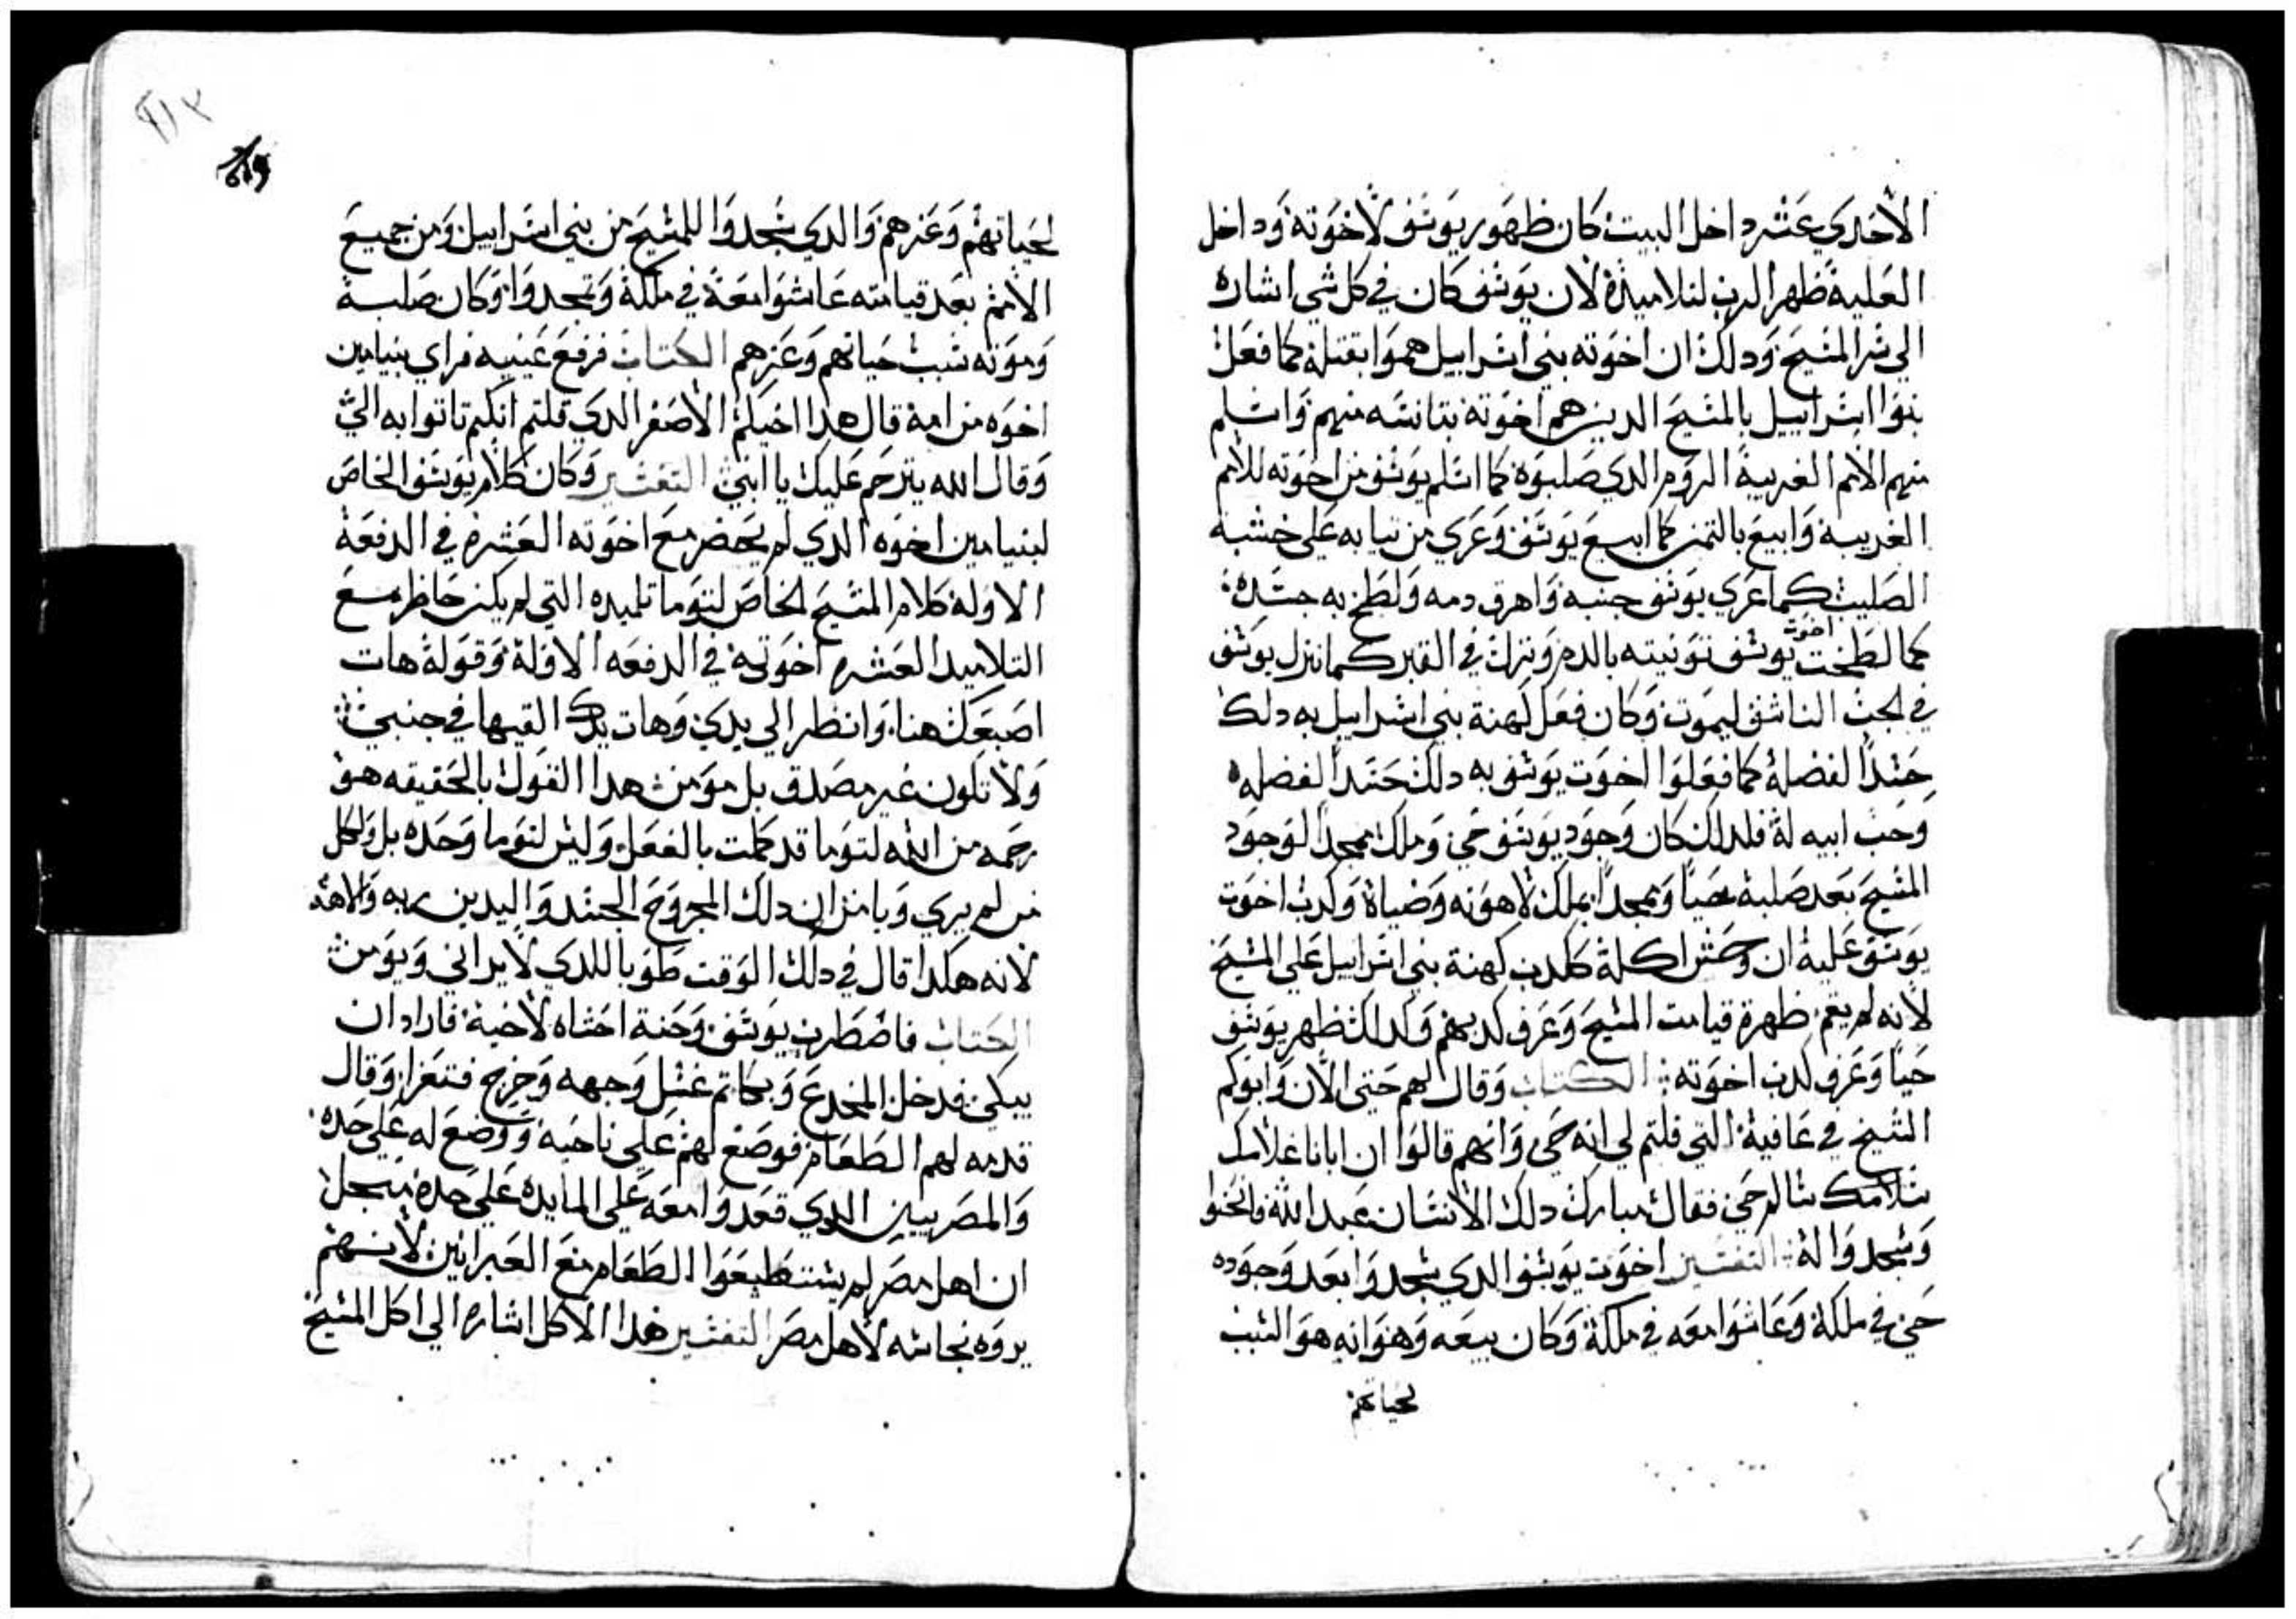 الأحدي عشر داخل البيت كان ظهور يوسف لأخوته وداخل
العلية ظهر الرب لتلاميذه لأن يوسف كان في كل شي اشاره
الي سر المسيح ودلك ان اخوته بني اسراييل هموا بقتله كما فعل
بنوا اسراييل بالمسيح الدين هم اخوته بتانسه منهم واسلم
منهم الأمم الغريبة الروم الدي صلبوه كما اسلم يوسف من اخوته للأمم
الغريبه وابيع بالتمن كما ابيع يوسف وعري من تيابه علي خشبة
الصليب كما عري يوسف جنبه واهرق دمه ولطخ به جسده
كما لطخت اخوت يوسف تونيته بالدم ونزل في القبر كما نزل يوسف
في الجب الناشف ليموت وكان فعل كهنة بني اسراييل به دلك
حسداً لفضله كما فعلوا اخوت يوسف به دلك حسداً لفضله
وحب ابيه له فلدلك كان وجود يوسف حي وملك بمجداً لوجود
المسيح بعد صلبه حياً وبمجداً بملك لاهوته وضياه وكدب اخوت
يوسف عليه ان وحش اكله ككدب كهنة بني اسراييل علي المسيح
لأنه لم يقم ظهرة قيامت المسيح وعرف كدبهم وكدلك ظهر يوسف
حياً وعرف كدب اخوته الكتاب وقال لهم حتي الأن وابوكم
الشيخ في عافية التي قلتم لي انه حي وانهم قالوا ان ابانا غلامك
سلامك سالم حي فقال مبارك دلك الأنسان عبد الله فانحنوا
وسجدوا له التفسير اخوت يوسف الدي سجدوا بعد وجوده
حي في ملكه وعاشوا معه في ملكه وكان بيعه وهوانه هو السبب
لحياتهم
لحياتهم وعزهم والدي سجدوا للمسيح من بني اسراييل ومن جميع
الأمم بعد قيامته عاشوا معه في ملكه وتمجدوا وكان صلبه
وموته سبب حياتهم وعزهم الكتاب فرفع عينيه فراي بنيامين
اخوه من امه قال هدا اخيكم الأصغر الدي قلتم انكم تاتوا به الي
وقال الله يترحم عليك يا ابني التفسير وكان كلام يوسف الخاص
لبنيامين اخوه الدي لم يحضر مع اخوته العشره في الدفعة
الاوله كلام المسيح الخاص لتوما تلميده التي لم يكن حاظر مع
التلاميد العشره اخوته في الدفعه الاوله وقوله هات
اصبعك هنا وانظر الي يدي وهات يدك القيها في جنبي
ولا تكون غير مصدق بل مومن هدا القول بالحقيقه هو
رحمه من الله لتوما قد كملت بالفعل وليس لتوما وحده بل ولكل
من لم يري ويامن ان دلك المجروح الجسد واليدين ربه والاهه
لأنه هكدا قال في دلك الوقت طوبا للدي لا يراني ويومن
الكتاب فاضطرب يوسف وحنة احشاه لأخيه فاراد ان
يبكي فدخل المخدع وبكا تم غسل وجهه وخرج فتعزا وقال
قدمه لهم الطعام فوضع لهم علي ناحيه ووضع له علي حده
والمصريين الدي قعدوا معه علي المايده علي حده
ان اهل مصر لم يستطيعوا الطعام مع العبرانين لأنهم
يروه نجاسه لأهل مصر التفسير هدا الأكل اشاره الي اكل المسيح